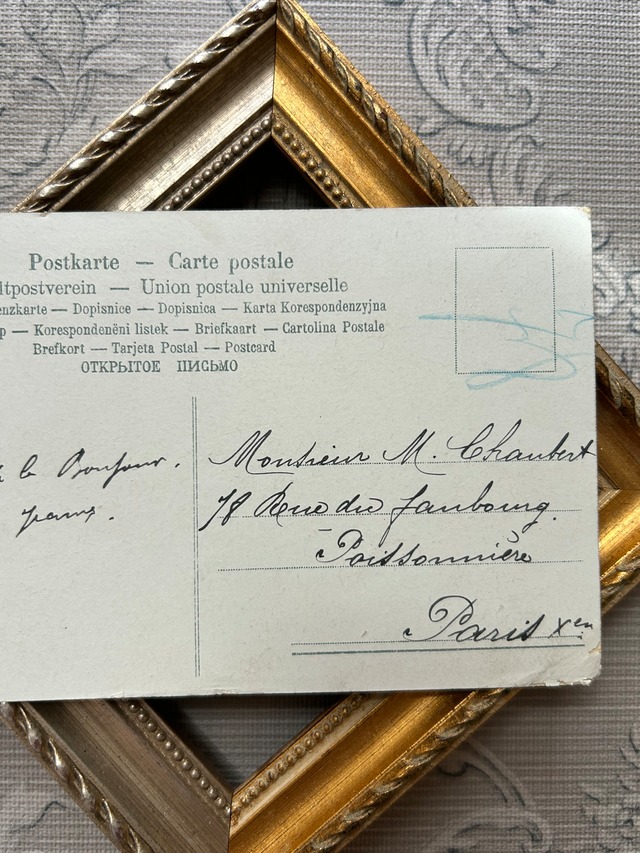 Postkarte — Carte postale
ltpostverein — Union postale universelle
enzkarte — Dopisnice — Dopisnica — Karta Korespondenzyjna
p — Korespondenĕni listek — Briefkaart — Cartolina Postale
Brefkort — Tarjeta Postal — Postcard
ОТКРЫТОЕ ПИСЬМО
le Bonjour.
Monsieur M. Chaubert
78 Rue du faubourg.
Poissonnière
Paris Xen